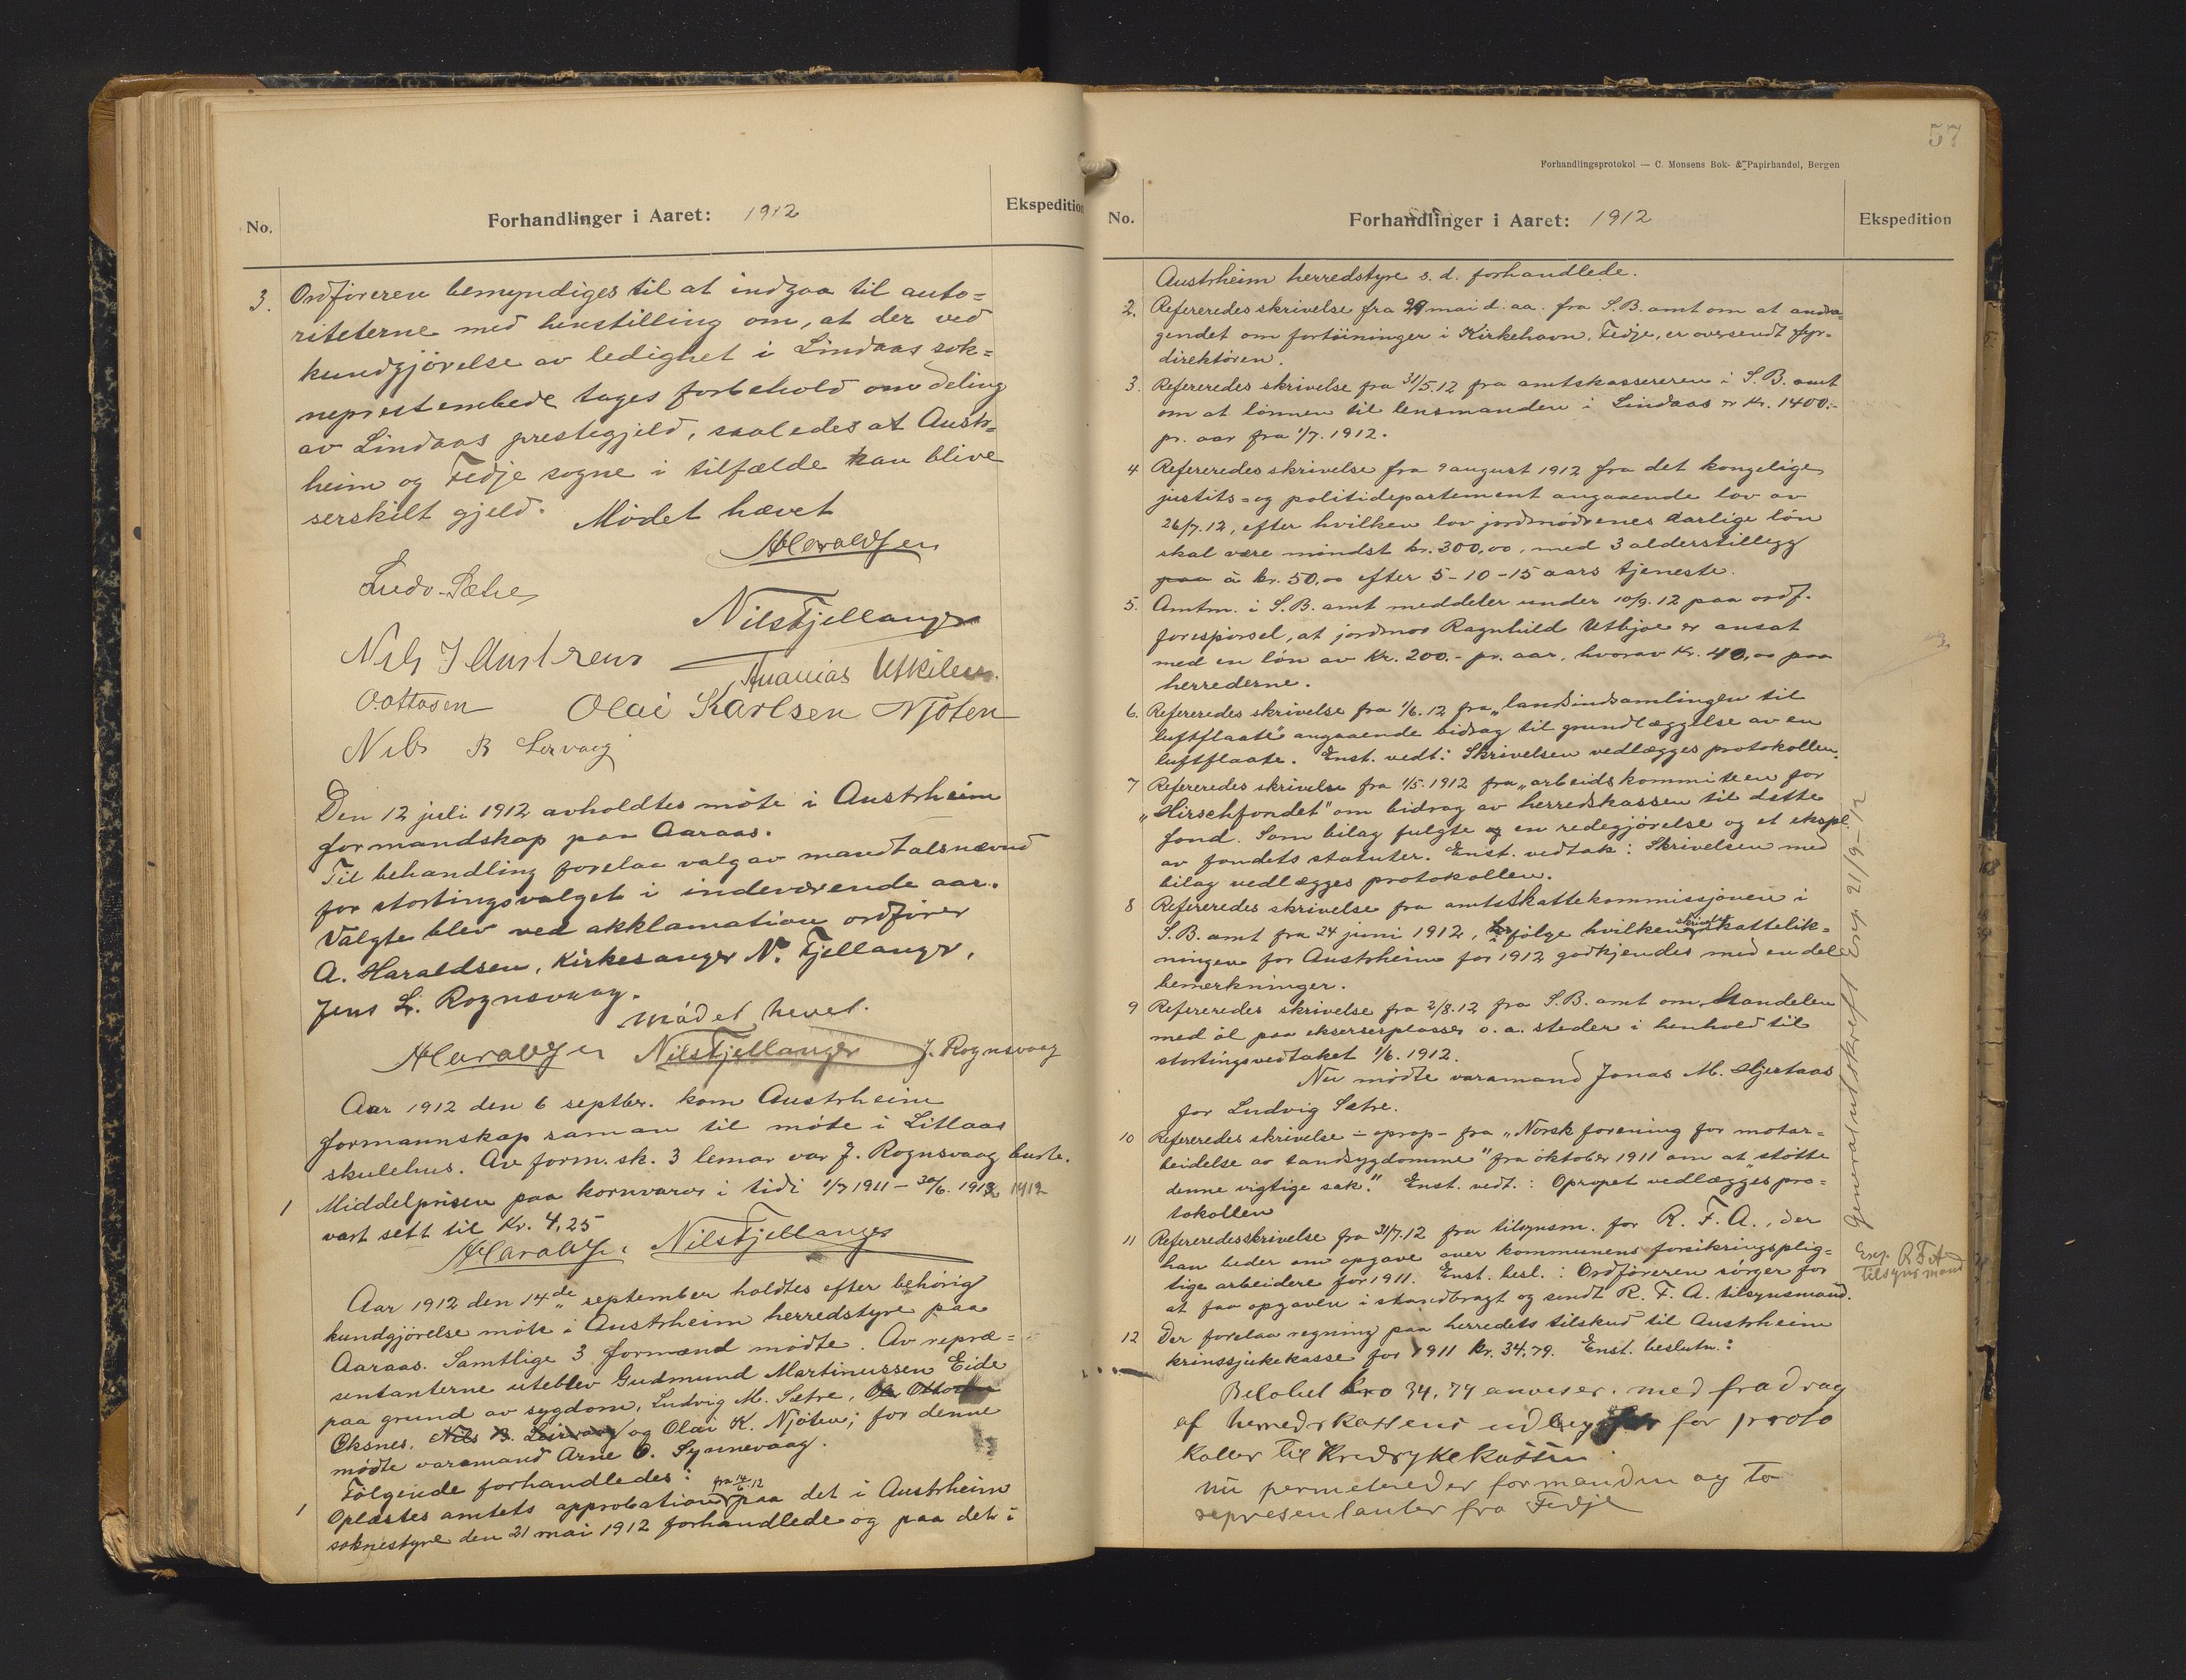 No.
Forhandlinger i Aaret: 1912
Ekspedition
3. Ordföreren bemyndiges til at indgaa til auto=
riteterne med henstilling om, at der ved
kundgjörelse av ledighet i Lindaas sok=
neprestembede tages forbehold om deling
av Lindaas prestegjeld, saaledes at Austr=
heim og Fedje sogne i tilfælde kan blive
serskilt gjeld. Mödet hævet
AHaraldsen
Ludv. Sætre
Nils Fjellanger
Nils J Austreim
Ananias Utkilen.
O. Ottosen Olai Karlsen Njöten
Nils B Lervaag
Den 12 juli 1912 avholdtes möte i Austrheim
formandskap paa Aaraas.
Til behandling forelaa valg av mandtalsnævnd
for stortingsvalget i indeværende aar.
Valgte blev ved akklamation ordförer
A. Haraldsen, Kirkesanger N. Fjellanger,
Jens L. Rognsvaag.
Mödet hevet.
AHaraldsen Nils Fjellanger J. Rognsvaag
Aar 1912 den 6 septbr. kom Austrheim
formannskap saman til möte i Litlaas
skulehus. Av form.sk. 3 lemar var J. Rognsvaag burte.
1 Middelprisen paa kornvaror i tidi 1/7 1911 – 30/6. 1912 1912
vart sett til Kr. 4,25
AHaraldsen Nils Fjellanger
Aar 1912 den 14de september holdtes efter behörig
kundgjörelse möte i Austrheim herredstyre paa
Aaraas. Samtlige 3 formænd mödte. Av repræ=
sentanterne uteblev Gudmund Martinussen Eide
paa grund av sygdom, Ludvig M. Sætre, Ole Ottosen
Oksnes, Nils B. Leirvaag og Olai K. Njöten; for denne
mödte varamand Arne O. Synnevaag.
Fölgende forhandledes:
1 Oplæstes amtets approbation fra 14/6.12 paa det i Austrheim
soknestyre den 21 mai 1912 forhandlede og paa det i
57
Forhandlingsprotokol — C. Monsens Bok- & Papirhandel, Bergen
No.
Forhandlinger i Aaret: 1912
Ekspedition
Austrheim herredstyre s. d. forhandlede.
2. Refereredes skrivelse fra 29 mai d. aa. fra S.B. amt om at andra=
gendet om fortöininger i Kirkehavn, Fedje, er oversendt fyr=
direktören.
3. Refereredes skrivelse fra 31/5.12 fra amtskassereren i S.B. amt
om at lönnen til lensmanden i Lindaas er Kr. 1400.-
pr. aar fra 1/7. 1912.
4 Refereredes skrivelse fra 9 august 1912 fra det kongelige
justits- og politidepartement angaaende lov av
26/7.12, efter hvilken lov jordmödrenes aarlige lön
skal være mindst kr. 300,00, med 3 alderstillegg
paa à kr. 50,00 efter 5-10-15 aars tjeneste.
5. Amtm. i S.B. amt meddeler under 10/9.12 paa ordf.
forespörsel, at jordmor Ragnhild Utbjoe er ansat
med en lön av Kr. 200.- pr. aar, hvorav Kr. 40,00 paa
herrederne.
6. Refereredes skrivelse fra 1/6.12 fra „landsindsamlingen til
luftflaate" angaaende bidrag til grundlæggelse av en
luftflaate. Enst. vedt: Skrivelsen vedlægges protokollen.
7 Refereredes skrivelse fra 1/5.1912 fra „arbeidskommiteen for
„Hirschfondet" om bidrag av herredskassen til dette
fond. Som bilag fulgte og en redegjörelse og et ekspl.
av fondets statuter. Enst. vedtak: Skrivelsen med
bilag vedlægges protokollen.
8 Refereredes skrivelse fra amtsskattekommissjonen i
S.B. amt fra 24 juni 1912, ifölge hvilken skrivelse skattelik=
ningen for Austrheim for 1912 godkjendes med en del
bemerkninger.
9 Refereredes skrivelse fra 2/8.12 fra S.B. amt om handelen
med öl paa ekserserplasser o. a. steder i henhold til
stortingsvedtaket 1/6. 1912.
Nu mödte varamand Jonas M. Hjertaas
for Ludvig Sætre.
10 Refereredes skrivelse – oprop – fra „Norsk forening for motar=
beidelse av tandsygdomme" fra oktober 1911 om at „stötte
denne vigtige sak." Enst. vedt.: Opropet vedlægges pro=
tokollen
11 Refereredes skrivelse fra 31/7.12 fra tilsynsm. for R. F. A., der
han beder om opgave over kommunens forsikringsplig=
tige arbeidere for 1911. Enst. besl.: Ordföreren sörger for
at faa opgaven i standbragt og sendt R. F. A. tilsynsmand.
12 Der forelaa regning paa herredets tilskud til Austrheim
krinssjukekasse for 1911 kr. 34,79. Enst. beslutn.:
Belöbet kro 34,79 anviser. med fradrag
af herredskassens udlæg for proto
koller til Kredsykekassen
nu permeterede formanden og to
representanter fra Fedje
Generalutskrift Exp 21/9-12
Exp. R F A
tilsynsmand